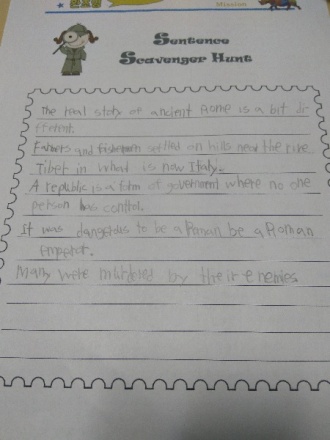 Mission
Sentence
Scavenger Hunt
The real story of ancient Rome is a bit di
fferent.
Farmers and fishermen settled on hills near the
Tiber in what is now Italy.
A republic is a form of government where no one
person has control.
It was dangerous to be a Raman be a Roman
emperor.
Many were murdered by their enemies